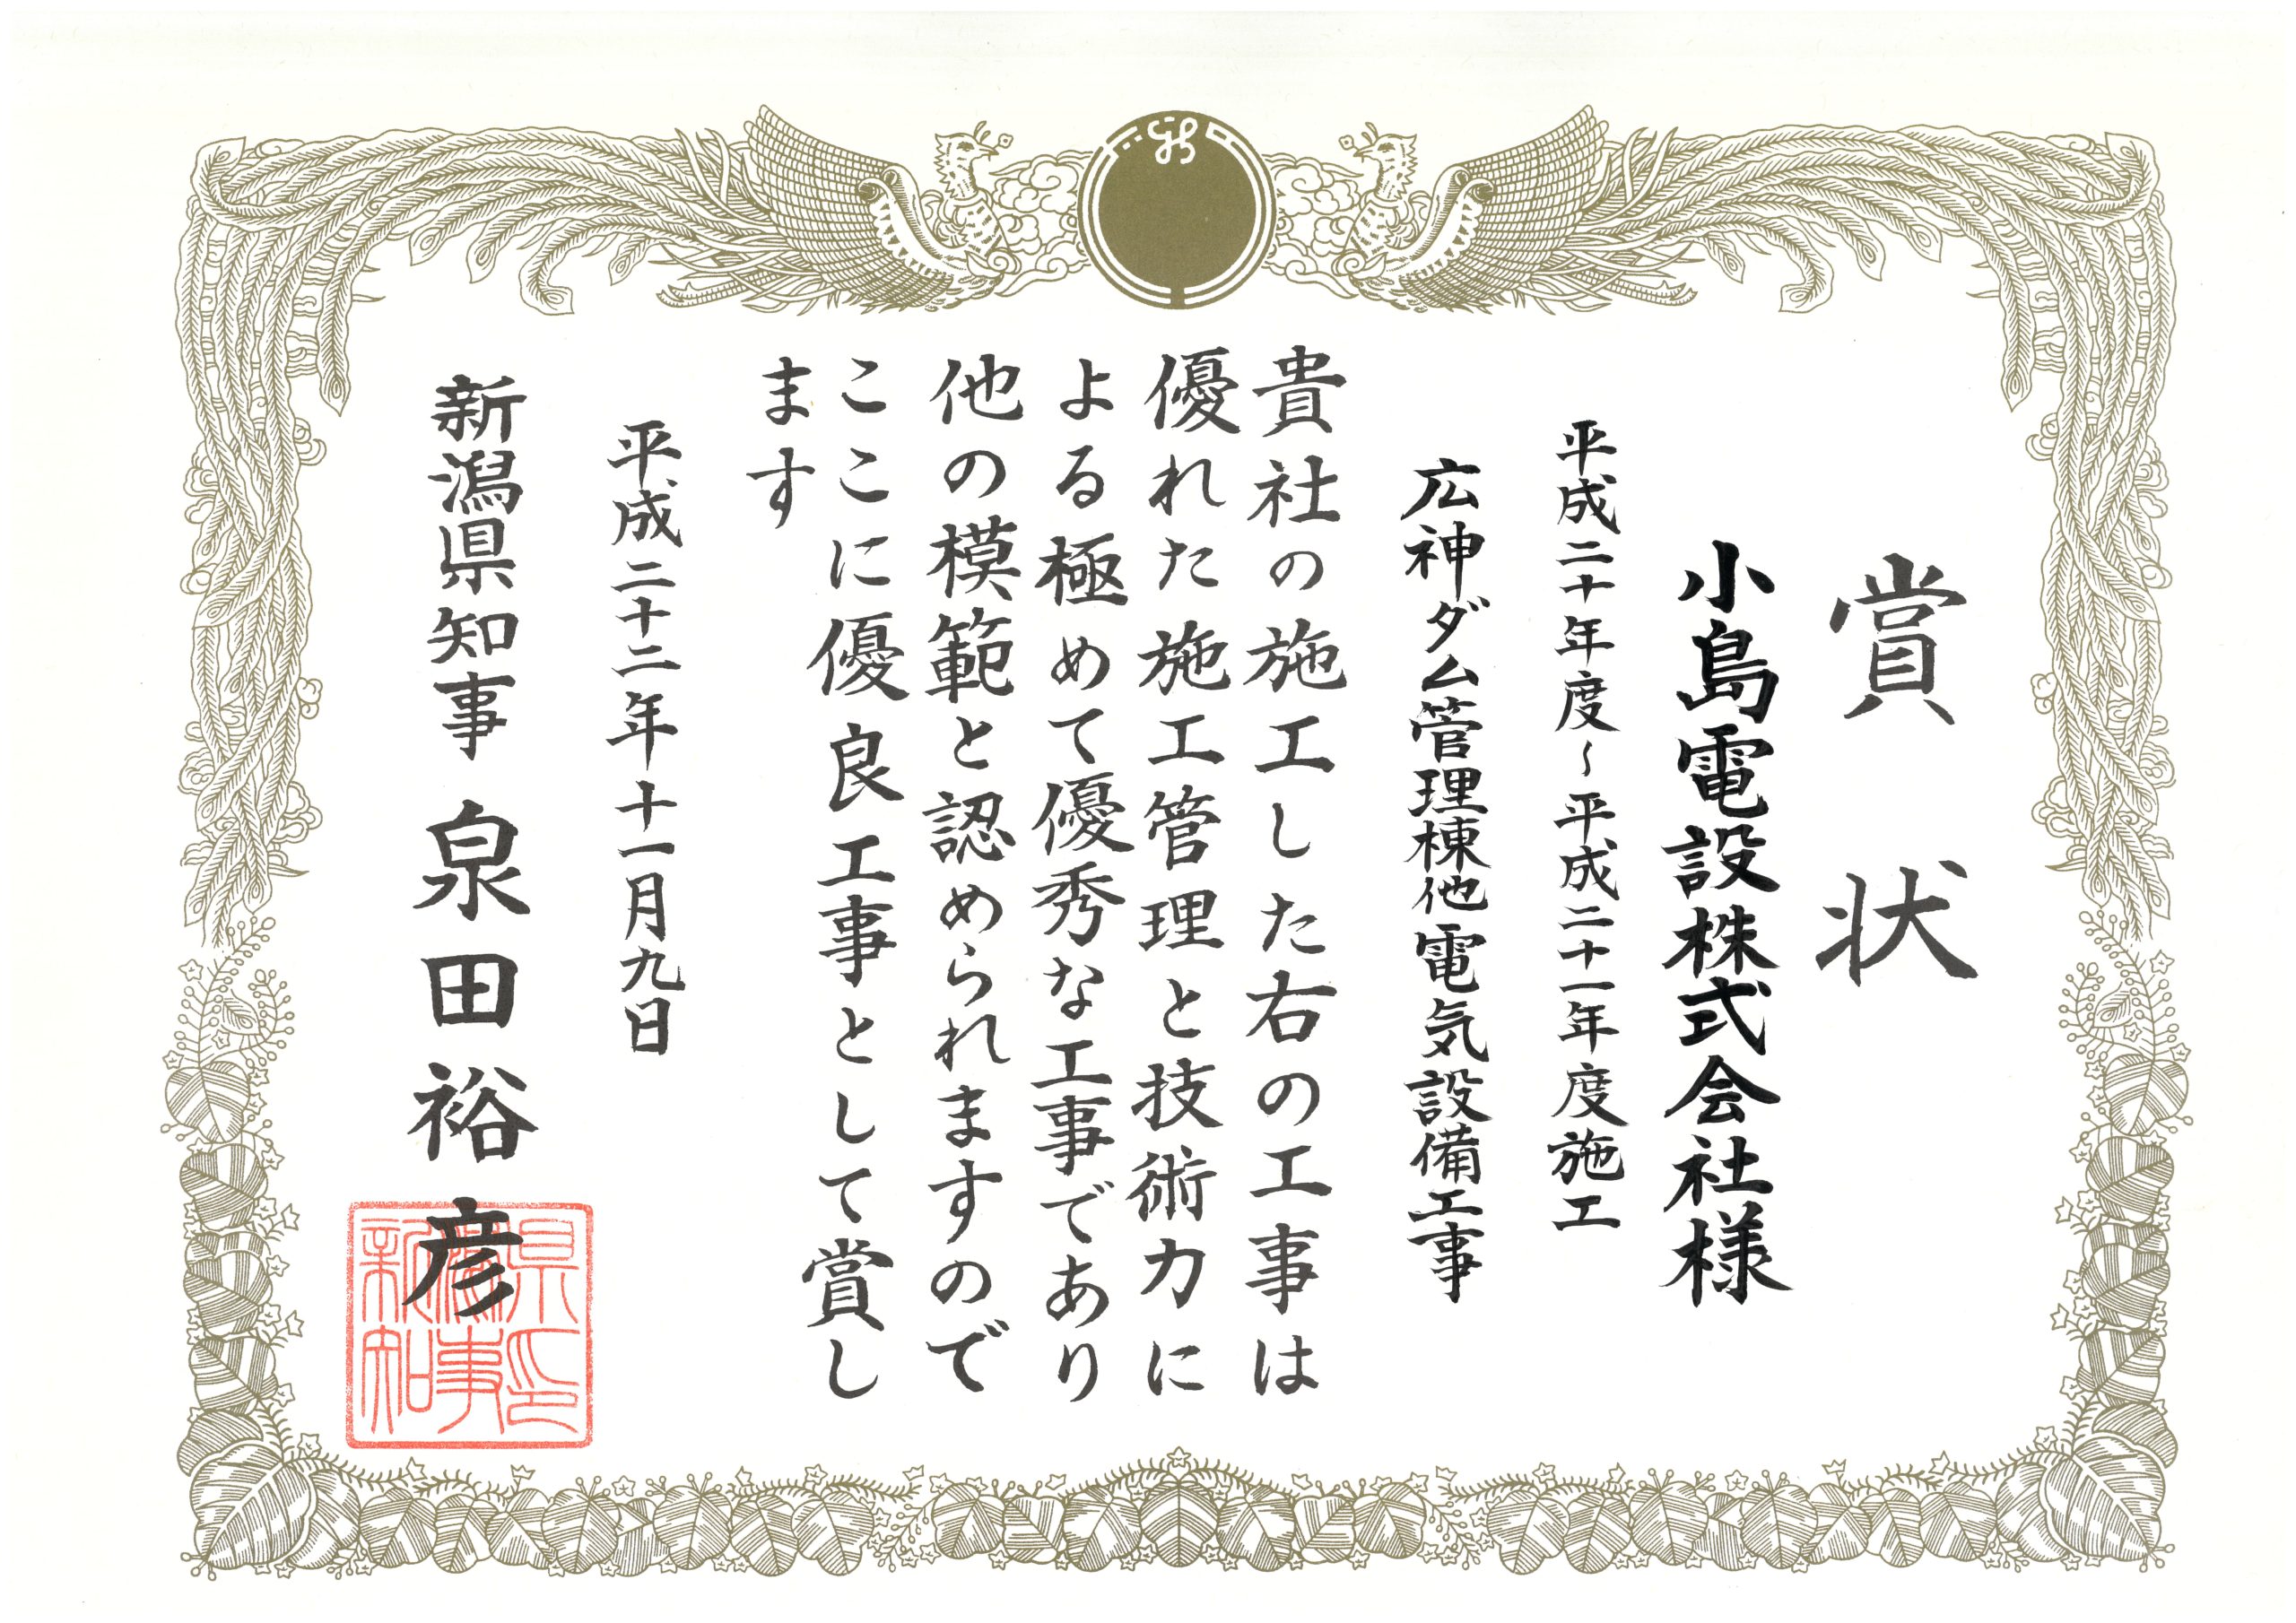 賞状
小島電設株式会社様
平成二十年度~平成二十一年度施工
広神ダム管理棟他電気設備工事
貴社の施工した右の工事は
優れた施工管理と技術力に
よる極めて優秀な工事であり
他の模範と認められますので
ここに優良工事として賞し
ます
平成二十二年十一月九日
新潟県知事 泉田裕彦
新潟県知事印